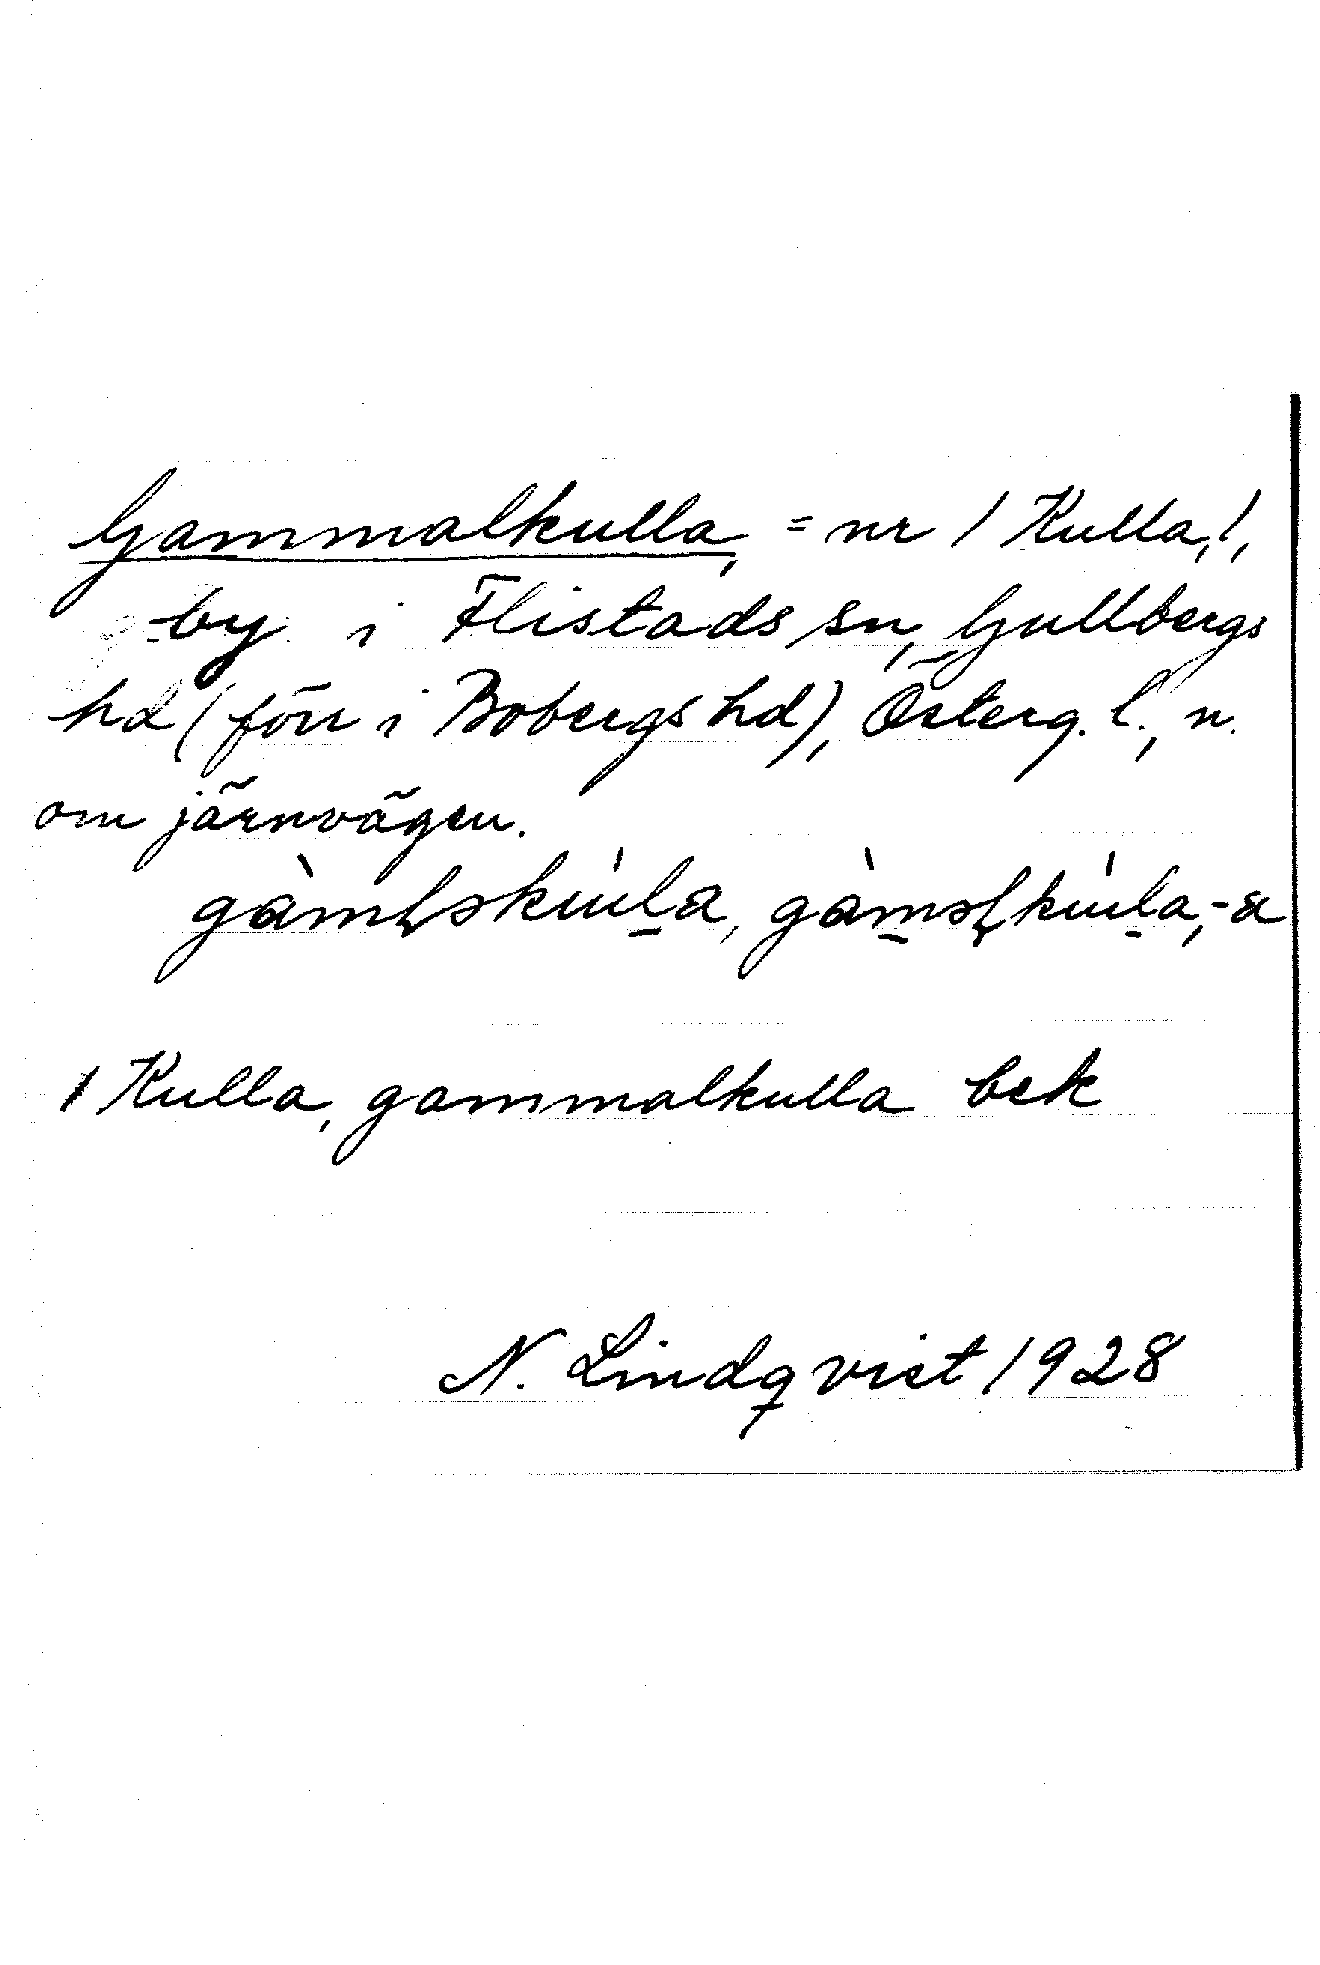 Gammalkulla, = nr 1 Kulla, l,
by i Flistads sn, Gullbergs
hd (förr i Bobergs hd), Österg. l., n.
om järnvägen.
1 Kulla, gammalkulla bek
N. Lindqvist 1928